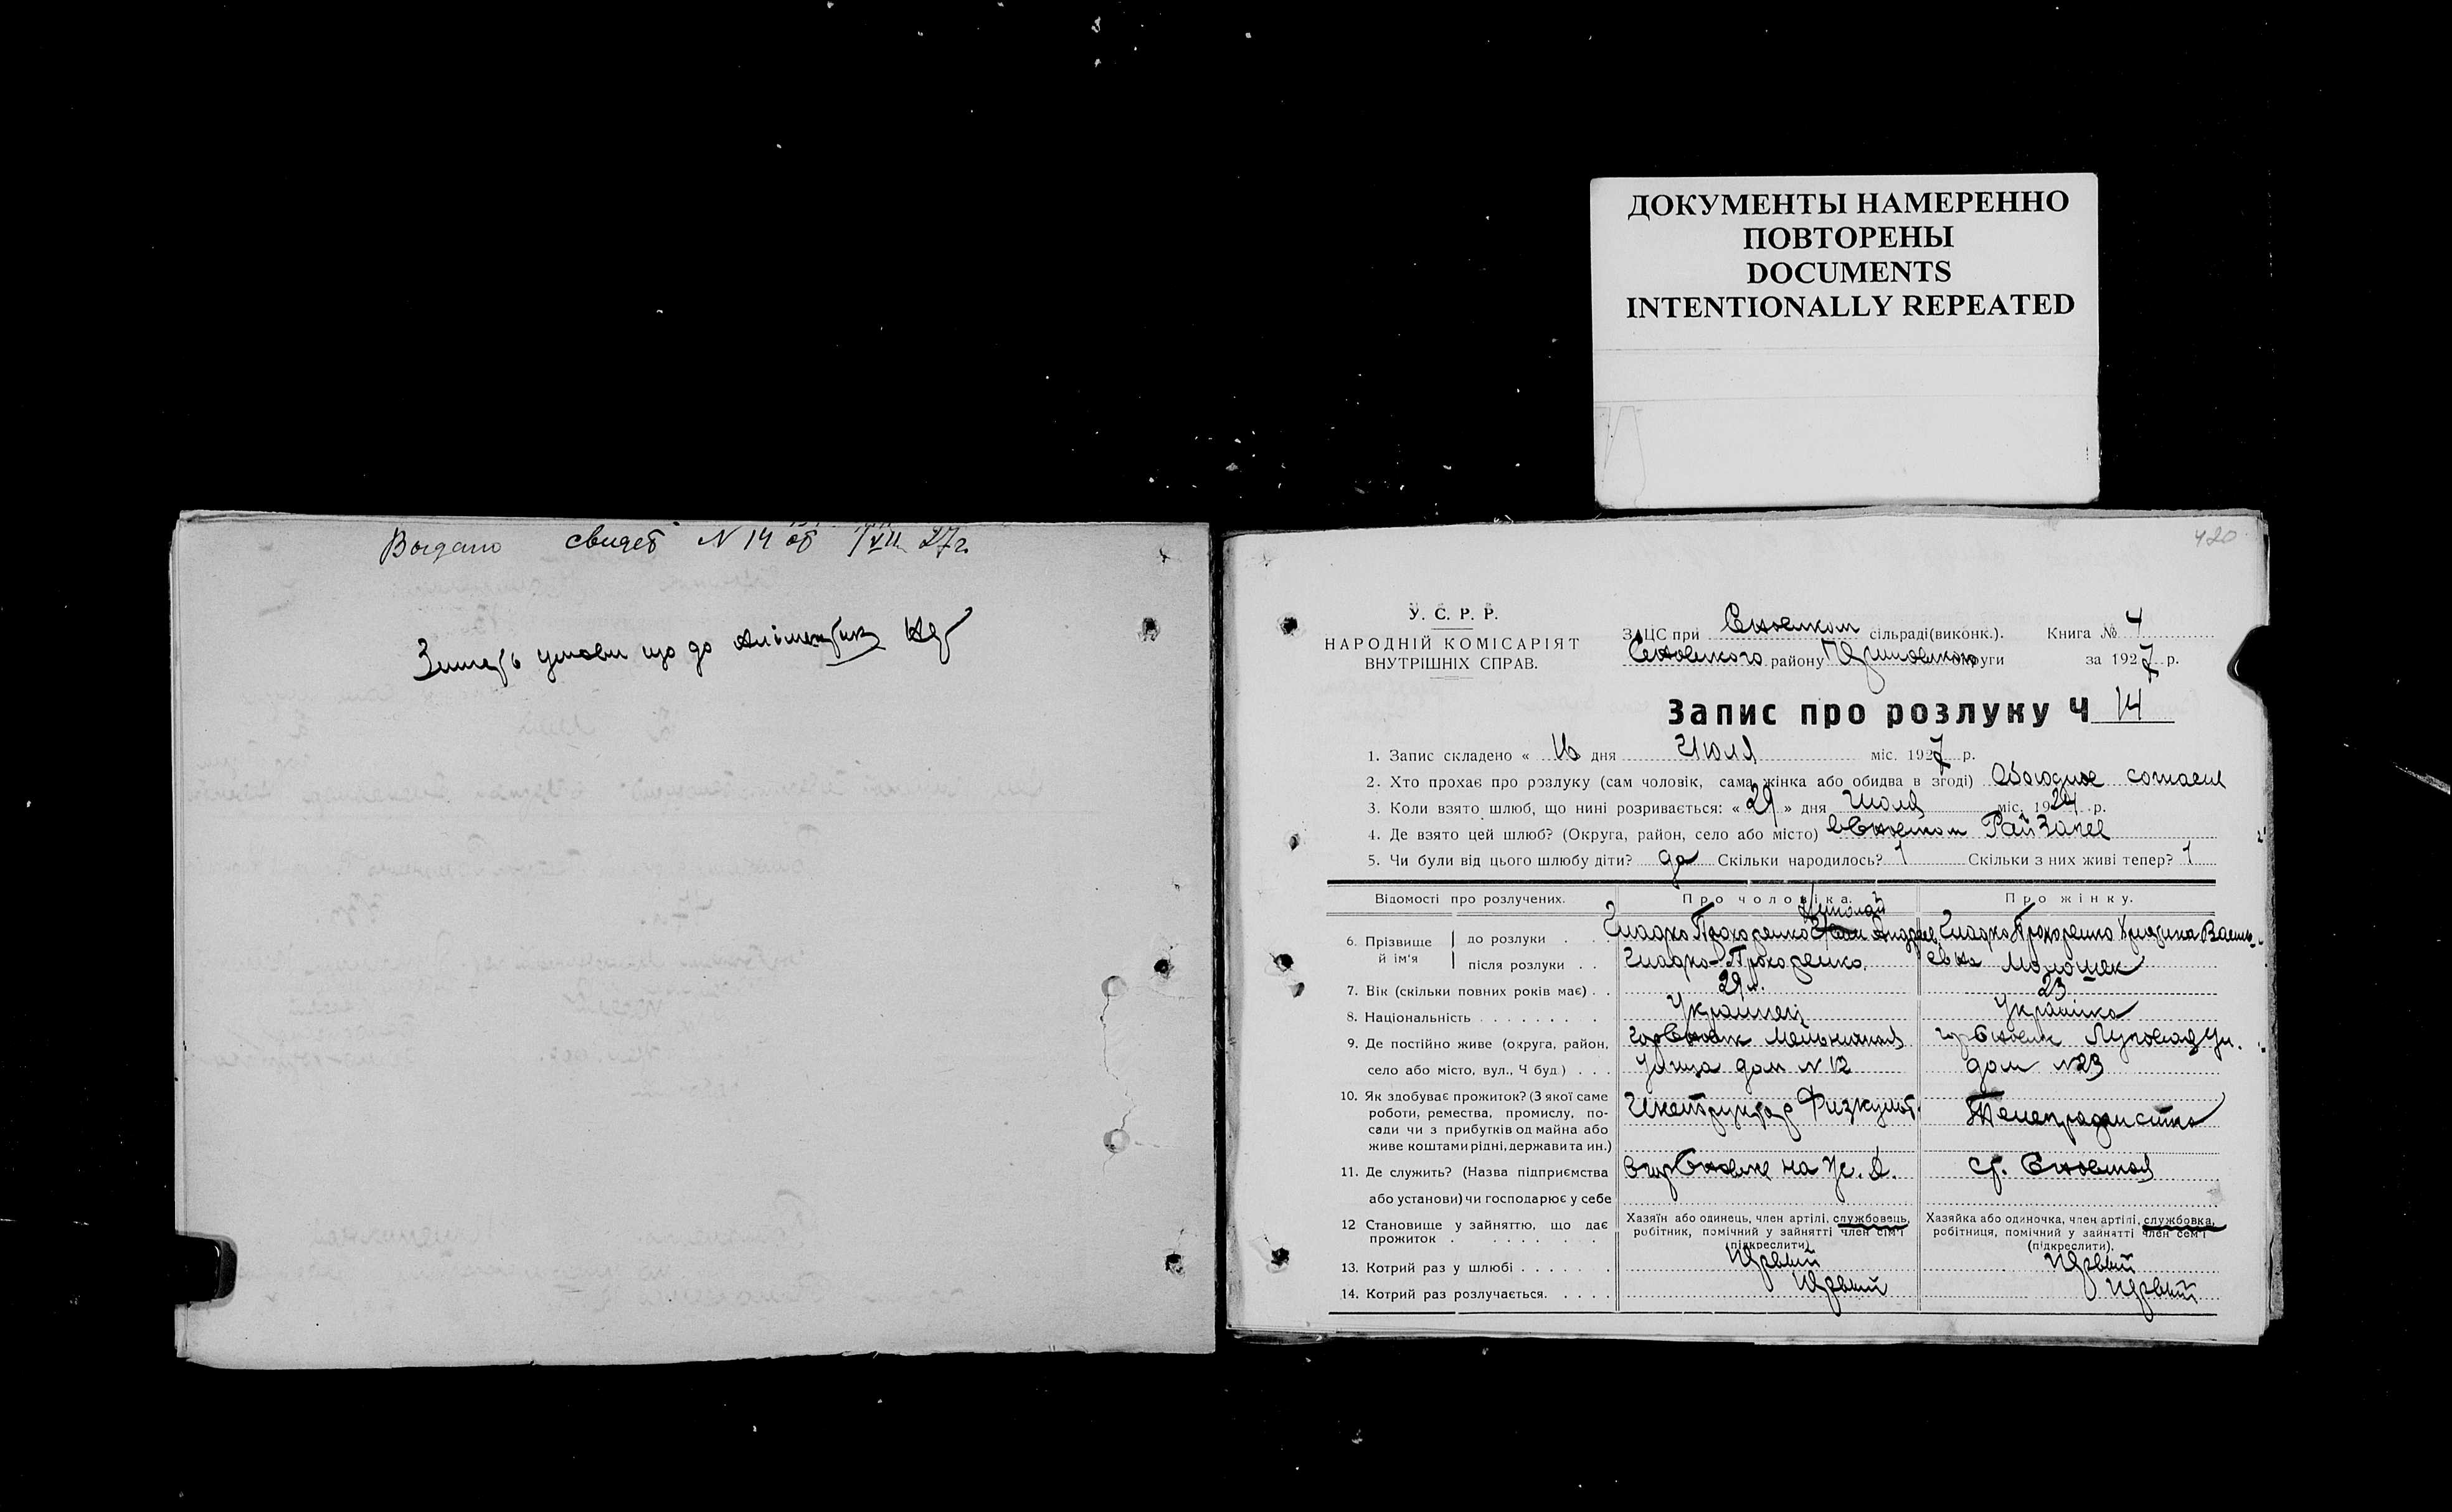 ДОКУМЕНТЫ НАМЕРЕННО
ПОВТОРЕНЫ
DOCUMENTS
INTENTIONALLY REPEATED
Выдано свидет N 14 от /VII 27 г.
умови що до
420
У. С. Р. Р.
НАРОДНІЙ КОМІСАРІЯТ
ВНУТРІШНІХ СПРАВ.
ЗАЦС при Сновском сільраді (виконк.). Книга № 4
Сновского району округи за 1927 р.
Запис про розлуку Ч 14
1. Запис складено « 16 дня Июля міс. 1927 р.
2. Хто прохає про розлуку (сам чоловік, сама жінка або обидва в згоді) Обоюдное согласие
3. Коли взято шлюб, що нині розривається: « 29 » дня Июля міс. 1924 р.
4. Де взято цей шлюб? (Округа, район, село або місто) Сновском РайЗагсе
5. Чи були від цього шлюбу діти? да Скільки народилось? 1 Скільки з них живі тепер? 1
Відомості про розлучених. Про чоловіка. Про жінку.
Николай
6. Прізвище й ім'я до розлуки . . . Гладко Прохоренко Андрее Гладко Прохоренко Васил-
після розлуки . . Гладко-Прохоренко евна
7. Вік (скільки повних років має) . . 29 л. 23
8. Національність . . . . . . . . Украинец Українка
9. Де постійно живе (округа, район, гор Сновск Мельничная гор Сновск Луговая ул.
село або місто, вул., Ч буд) . . . улица дом N 12 дом N 23
10. Як здобуває прожиток? (З якої саме
роботи, ремества, промислу, по- Инструктор Физкульт. Телеграфистка
сади чи з прибутків од майна або
живе коштами рідні, держави та ин.)
11. Де служить? (Назва підприємства в гор Сновске на ж. д. ст. Сновская
або установи) чи господарює у себе
12 Становище у зайняттю, що дає Хазяїн або одинець, член артілі, службовець, Хазяйка або одиночка, член артілі, службовка,
прожиток . . . . . . . робітник, помічний у зайнятті член сім'ї робітниця, помічний у зайнятті член сем'ї
(підкреслити) (підкреслити).
13. Котрий раз у шлюбі . . . . . . Первый Первый
14. Котрий раз розлучається. . . . . Первый Первый